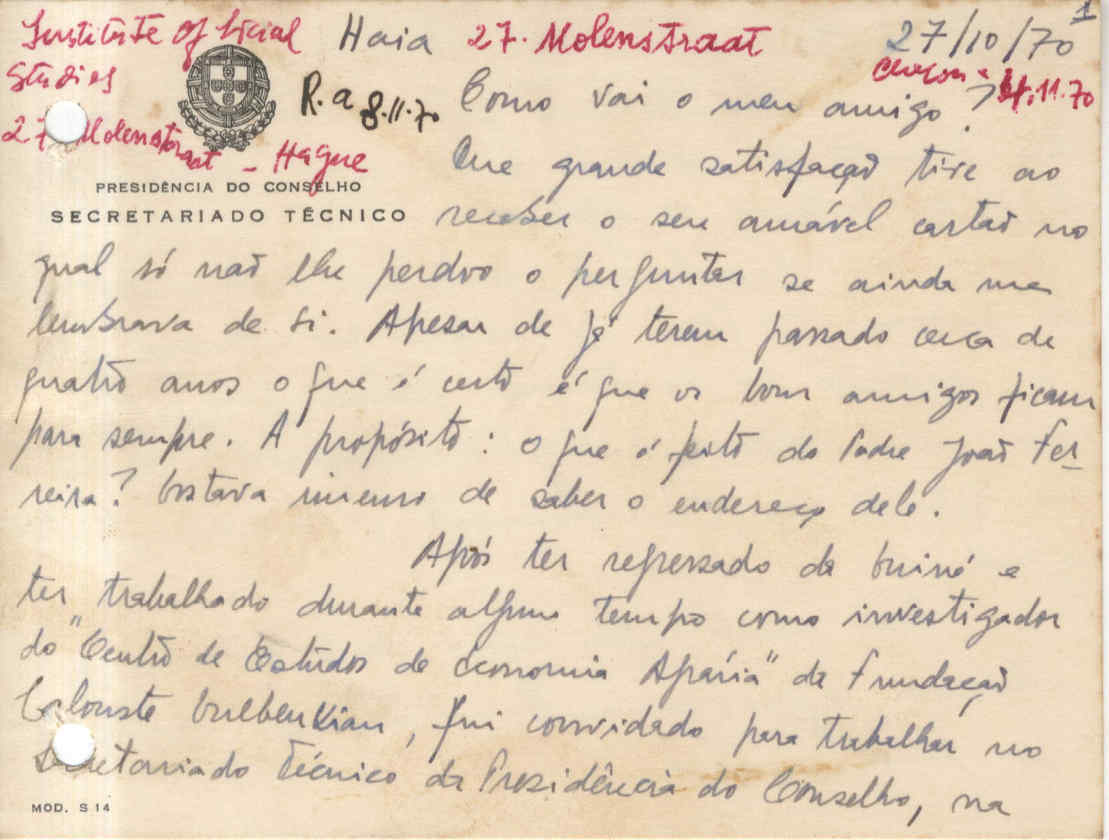 1
Institute of Social Haia 27. Molenstraat 27/10/70
Studies
Chegou a 4.11.70
R. a 8.11.70 Como vai o meu amigo?
27 Molenstraat - Hague
Que grande satisfação tive ao
PRESIDÊNCIA DO CONSELHO
SECRETARIADO TÉCNICO
receber o seu amável cartão no
qual só não lhe perdoo o perguntar se ainda me
lembrava de si. Apesar de já terem passado cerca de
quatro anos o que é certo é que os bons amigos ficam
para sempre. A propósito: o que é feito do Padre João Fer-
reira? Gostava imenso de saber o endereço dele.
Após ter regressado da Guiné e
ter trabalhado durante algum tempo como investigador
do "Centro de Estudos de Economia Agrária" da Fundação
Calouste Gulbenkian, fui convidado para trabalhar no
Secretariado Técnico da Presidência do Conselho, na
MOD. S 14